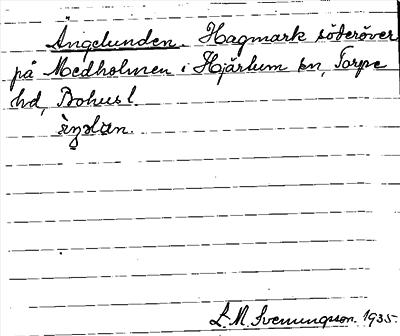 Ängelunden. Hagmark söderöver
på Medholmen i Hjärtum sn, Torpe
hd, Bohusl
L. M. Svenungsson. 1935.